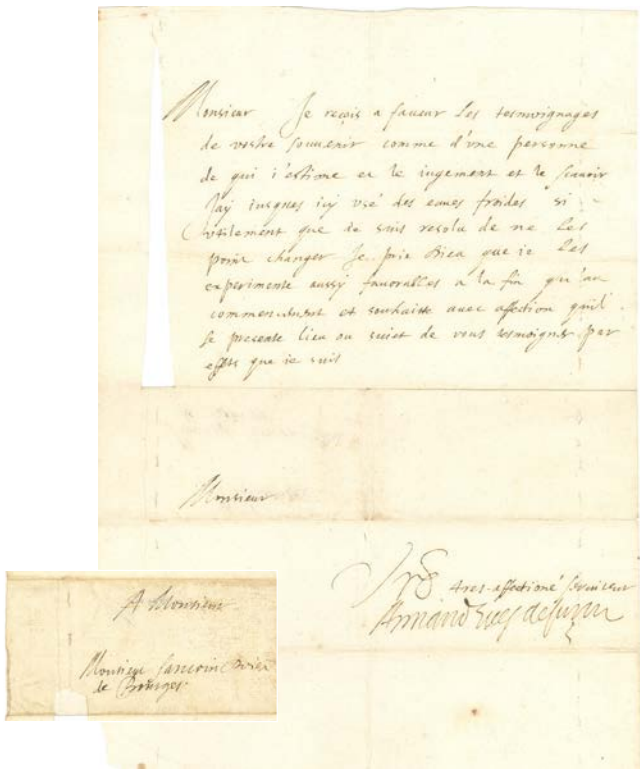 Monsieur Je reçois a faueur les tesmoignages
de vostre souuenir comme d'vne personne
de qui i'estime et le iugement et le scauoir
J'ay iusques icy vsé des eaues froides si
vtilement que ie suis resolu de ne les
point changer Je prie Dieu que ie les
experimente aussy fauorables a la fin qu'au
commencement et souhaitte auec affection qu'il
se presente lieu ou suiet de vous tesmoigner par
effets que ie suis
Monsieur
tres-affectioné seruiteur
Armand
A Monsieur
Monsieur
de Bourges